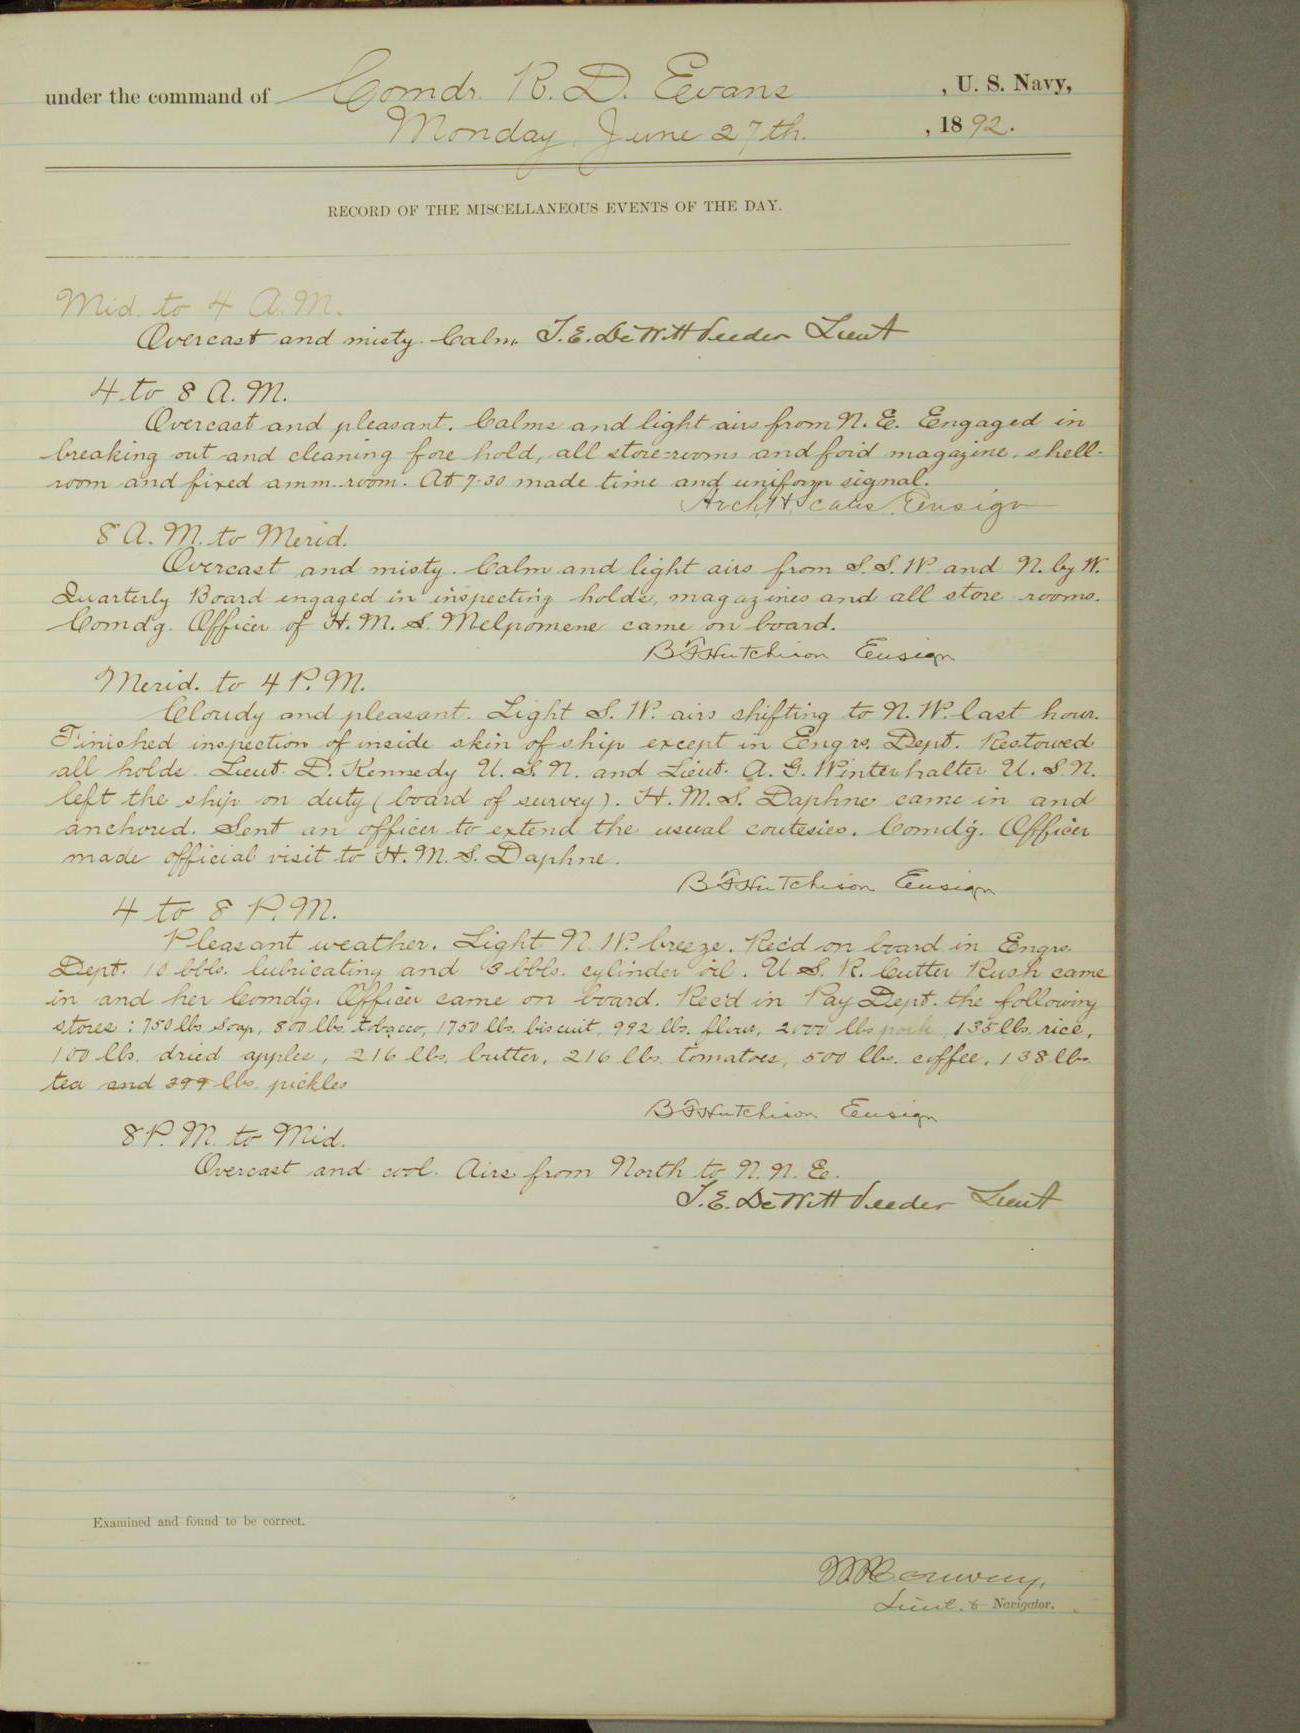 under the command of Comdr. R. D. Evans , U. S. Navy,
Monday June 27th. , 1892.
RECORD OF THE MISCELLANEOUS EVENTS OF THE DAY.
Mid. to 4 A. M.
Overcast and misty. Calm. T. E. DeWitt Veeder Lieut
4 to 8 A. M.
Overcast and pleasant. Calms and light airs from N. E. Engaged in
breaking out and cleaning fore hold, all store-rooms and for'd magazine, shell-
room and fixed amm. room. At 7-30 made time and uniform signal.
Arch. H. Scales Ensign
8 A. M. to Merid.
Overcast and misty. Calm and light airs from S. S. W. and N. by W.
Quarterly Board engaged in inspecting holds, magazines and all store rooms.
Comd'g. Officer of H. M. S. Melpomene came on board.
B F Hutchison Ensign
Merid. to 4 P. M.
Cloudy and pleasant. Light S. W. airs shifting to N. W. last hour.
Finished inspection of inside skin of ship except in Engrs. Dept. Restowed
all holds. Lieut. D. Kennedy U. S. N. and Lieut. A. G. Winterhalter U. S. N.
left the ship on duty (board of survey). H. M. S. Daphne came in and
anchored. Sent an officer to extend the usual coutesies. Comd'g. Officer
made official visit to H. M. S. Daphne.
B F Hutchison Ensign
4 to 8 P. M.
Pleasant weather. Light N. W. breeze. Rec'd on board in Engrs.
Dept. 10 bbls. lubricating and 3 bbls. cylinder oil. U. S. R. Cutter Rush came
in and her Comd'g. Officer came on board. Rec'd in Pay Dept. the following
stores: 750 lbs. soap, 800 lbs. tobacco, 1750 lbs. biscuit, 992 lbs. flour, 2000 lbs pork, 135 lbs. rice,
100 lbs. dried apples, 216 lbs. butter, 216 lbs. tomatoes, 500 lbs. coffee, 138 lbs.
tea and lbs. pickles
B F Hutchison Ensign
8 P. M. to Mid.
Overcast and cool. Airs from North to N. N. E.
T. E. DeWitt Veeder Lieut
Examined and found to be correct.
Lieut. & Navigator.